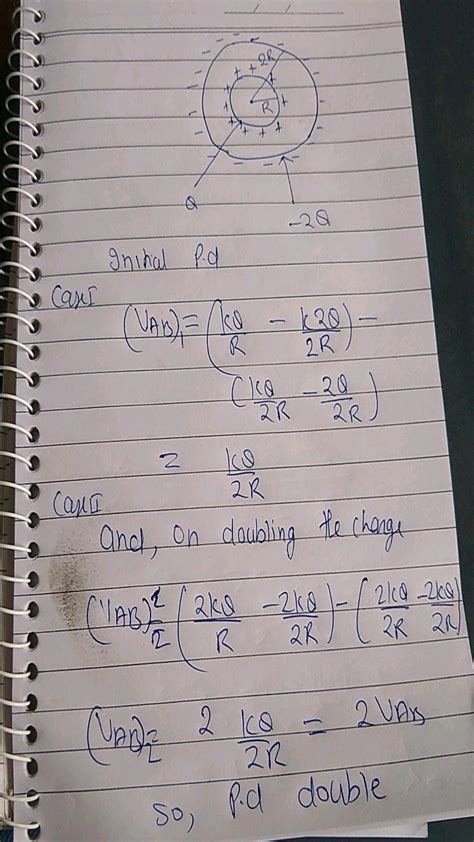 2R
R
Q
-2Q
Initial P.d
Case I
(VAB)1 = (kQ/R - k2Q/2R) -
(kQ/2R - 2Q/2R)
= kQ/2R
Case II
and, on doubling the change
(VAB)2 = (2kQ/R - 2kQ/2R) - (2kQ/2R - 2kQ/2R)
(VAB)2 = 2 kQ/2R = 2VAB
so, P.d double